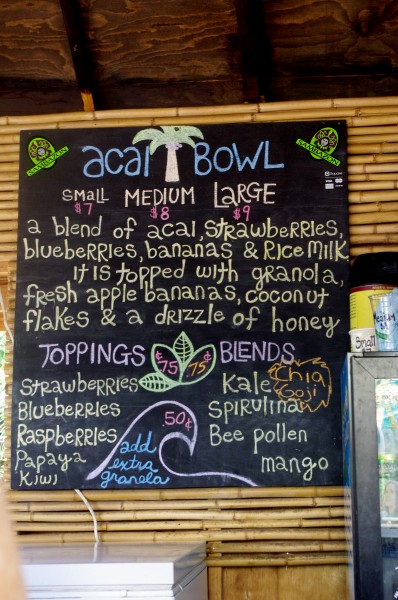 SAMBAZON
SAMBAZON
acai BOWL
Small MEDIUM LARGE
$7 $8 $9
a blend of acai, strawberries,
blueberries, bananas & Rice Milk
it is topped with granola,
fresh apple bananas, coconut
flakes & a drizzle of honey
TOPPINGS 75¢ 75¢ BLENDS
Strawberries
Blueberries
Raspberries
Papaya
Kiwi
.50¢
add
extra
granela
Kale
Chia
Goji
Spirulina
Bee pollen
mango
Small
Medium